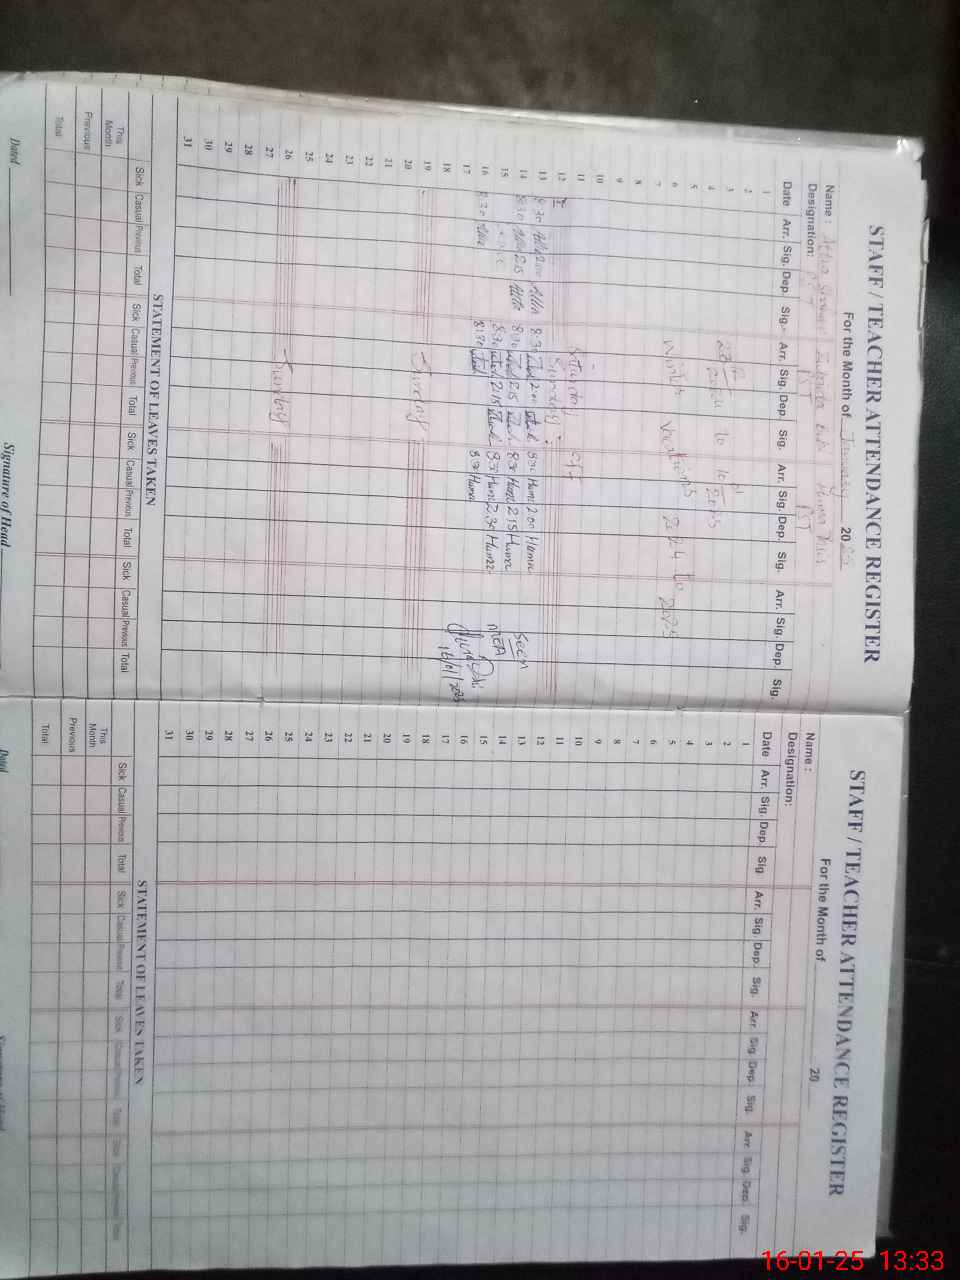 STAFF / TEACHER ATTENDANCE REGISTER
For the Month of January 2025
Name :
Designation: PST PST
Date Arr. Sig. Dep Sig. Arr. Sig. Dep. Sig. Arr. Sig. Dep. Sig. Arr. Sig. Dep. Sig.
1
2
3
4
5
6 Winter Vacations 2024 to 2025
7
8
9
10
11 Saturday off
12 Sunday
13 8:30 2:00 8:30 2:00 8:30 Huma 2:00 Huma
14 8:30 2:15 8:30 2:15 8:30 Huma 2:15 Huma
15 8:30 2:15 8:30 Huma 2:30 Huma
16 8:30 8:30 8:30 Huma
Seen
16/01/2025
17
18
19 Sunday
20
21
22
23
24
25
26 Sunday
27
28
29
30
31
STATEMENT OF LEAVES TAKEN
Sick Casual Previous Total Sick Casual Previous Total Sick Casual Previous Total Sick Casual Previous Total
This Month
Previous
Total
Dated
Signature of Head
STAFF / TEACHER ATTENDANCE REGISTER
For the Month of 20
Name :
Designation:
Date Arr. Sig. Dep. Sig Arr. Sig. Dep. Sig. Arr. Sig. Dep. Sig. Arr. Sig. Dep. Sig.
1
2
3
4
5
6
7
8
9
10
11
12
13
14
15
16
17
18
19
20
21
22
23
24
25
26
27
28
29
30
31
STATEMENT OF LEAVES TAKEN
Sick Casual Previous Total Sick Casual Previous Total Sick Casual Previous Total Sick Casual Previous Total
This Month
Previous
Total
Dated
16-01-25 13:33